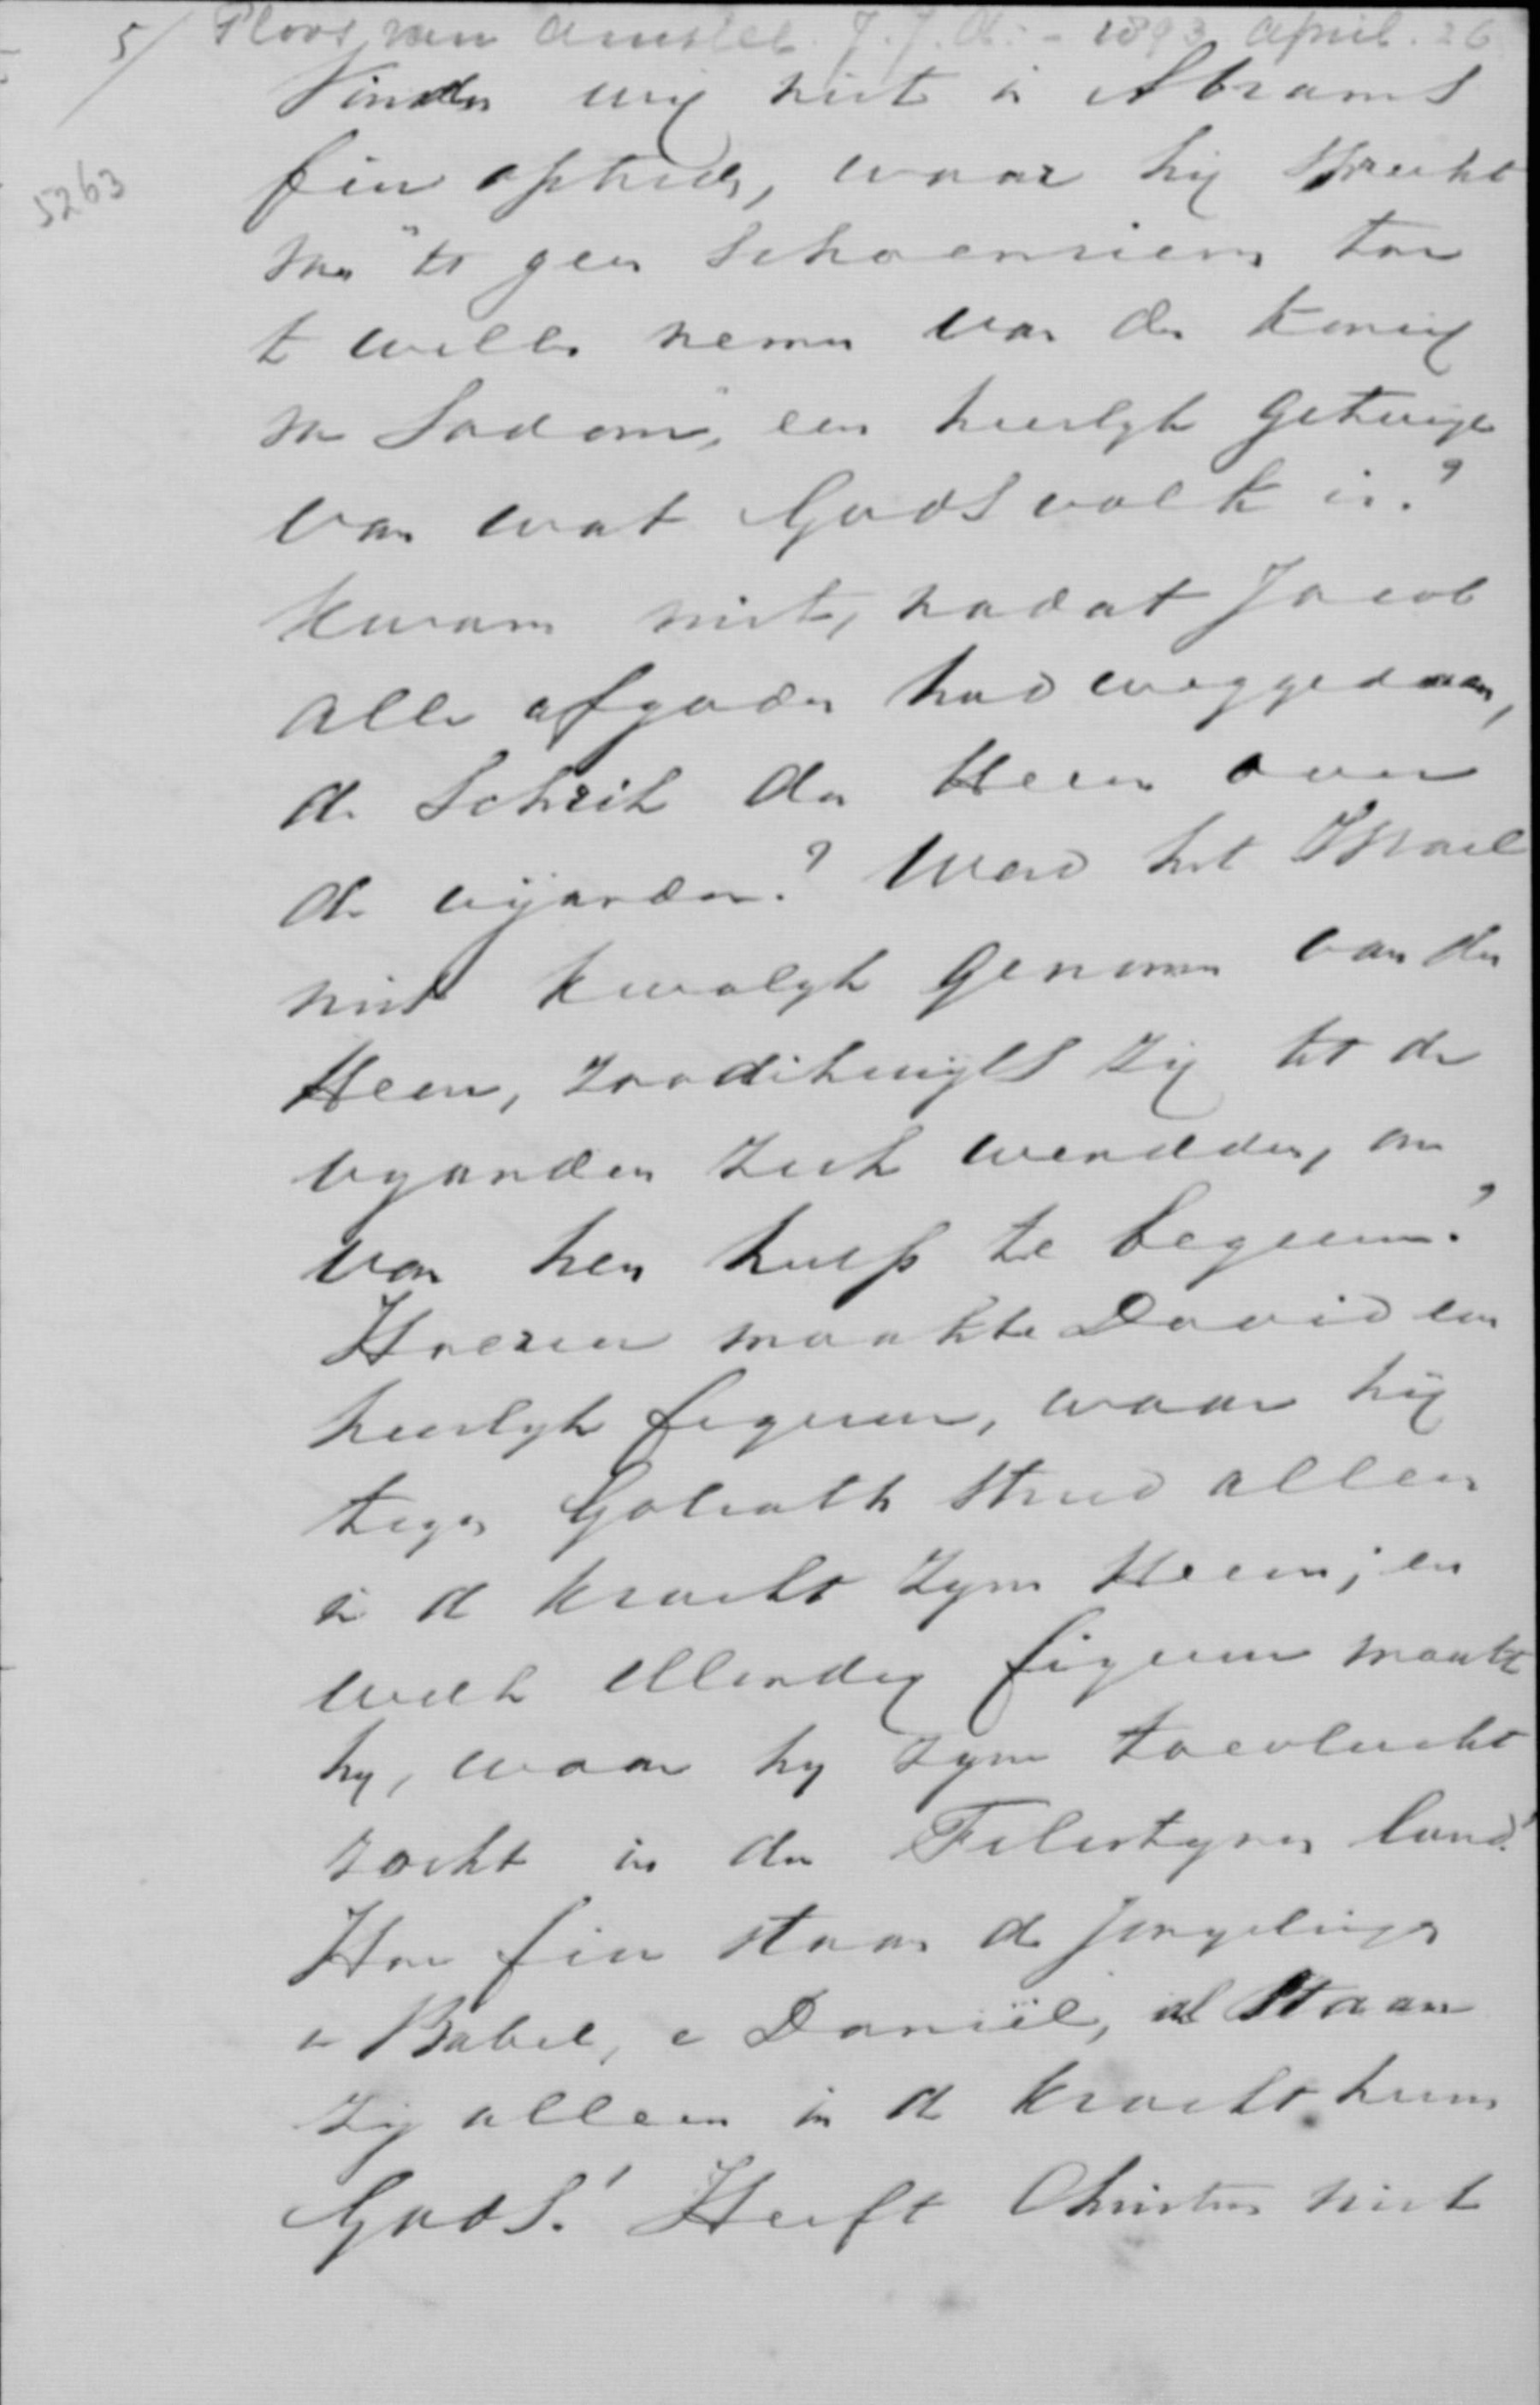 5/ Ploos van Amstel J.J.A. - 1893 April. 26
5263
Vinden wij niet in Abrams
fier optreden, waar hij spreekt
van "tot geen schoenriem toe
te willen nemen van den koning
van Sodom", een heerlyk getuige
van wat Gods volk is?
Kwam niet, nadat Jacob
alle afgoden had weggedaan,
de schrik des Heeren over
de vijanden? Werd het Israel
niet kwalyk genomen van den
Heere, zoodikwijls zij tot de
vyanden zich wendden, om
van hen hulp te begeeren?
Hoezeer maakte David een
heerlyk figuur, waar hij
tegen Goliath streed alleen
in de kracht zyns Heeren; en
welk ellendig figuur maakte
hy, waar hy zyne toevlucht
zocht in der Filistynen land!
Hoe fier staan de jongelingen
in Babel, en Daniël, al staan
zij alleen in de kracht huns
Gods! Heeft Christus niet